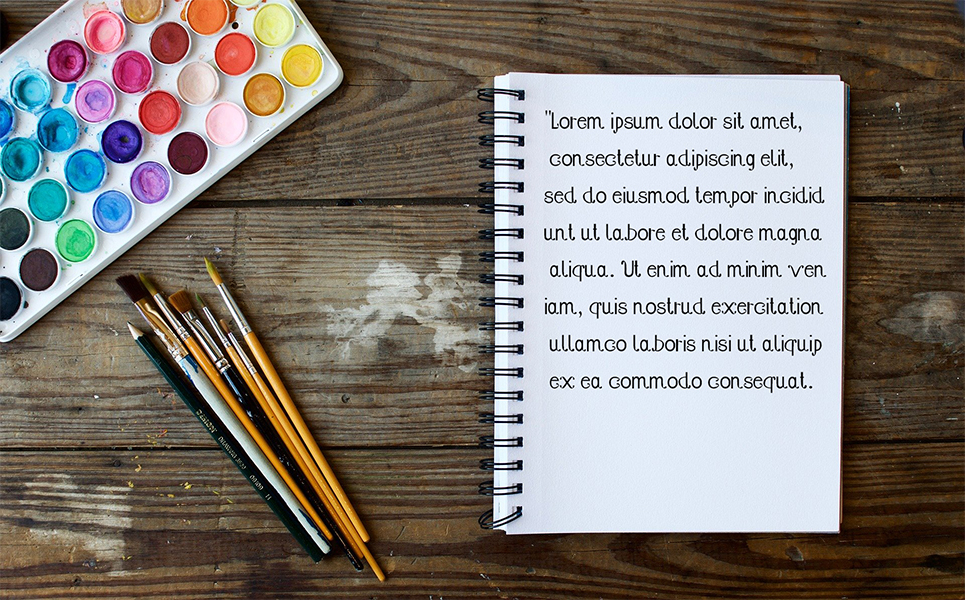 "Lorem ipsum dolor sit amet,
consectetur adipiscing elit,
sed do eiusmod tempor incidid
unt ut labore et dolore magna
aliqua. Ut enim ad minim ven
iam, quis nostrud exercitation
ullamco laboris nisi ut aliquip
ex ea commodo consequat.